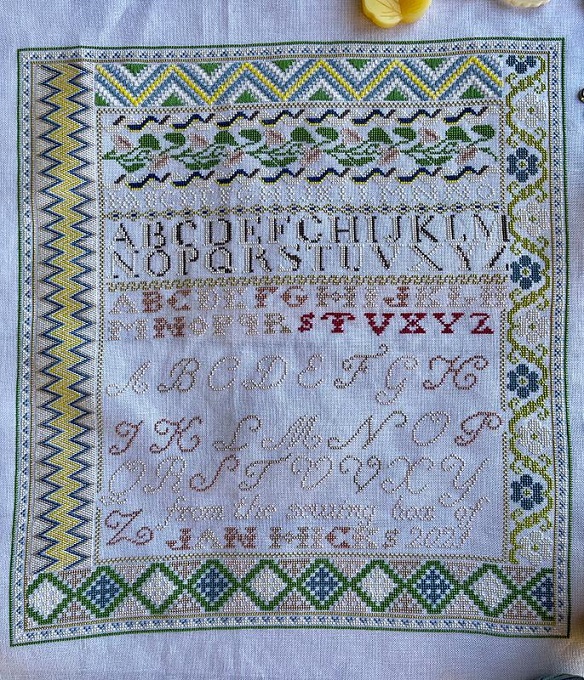 A B C D E F G H I J K L M
N O P Q R S T U V X Y Z
A B C D E F G H I J K L
M N O P Q R S T V X Y Z
A B C D E F G H
I K L M N O P
Q R S T U V X Y
from the sewing box of
Z JAN HICKS 2021